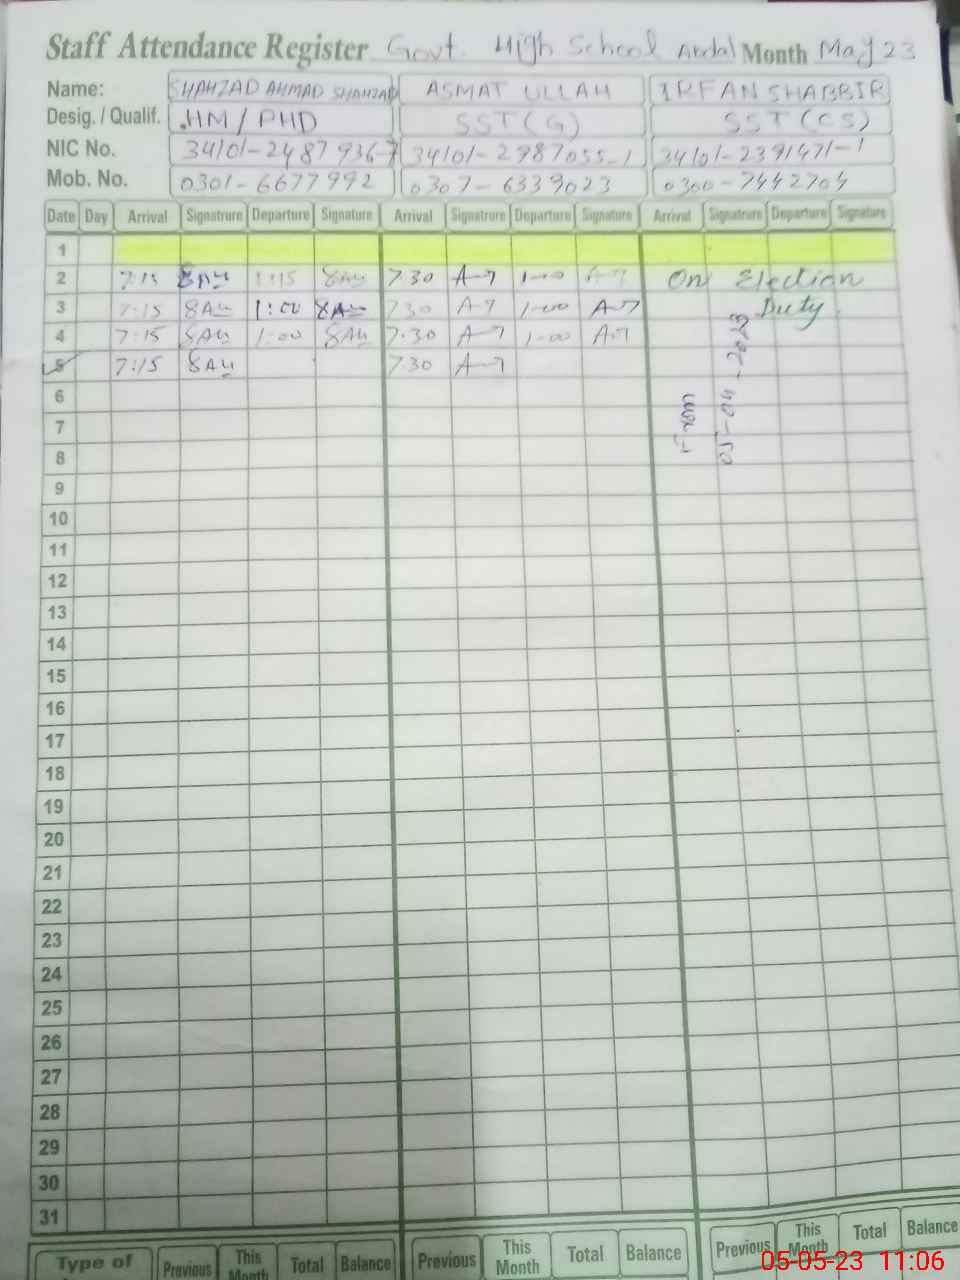 Staff Attendance Register Govt. High School Andal Month May 23
Name: SHAHZAD AHMAD SHAHZAD ASMAT ULLAH IRFAN SHABBIR
Desig. / Qualif. HM / PHD SST (G) SST (CS)
NIC No. 34101-2487936-7 34101-2987055-1 34101-2391471-1
Mob. No. 0301-6677992 0307-6339023 0300-7442704
Date Day Arrival Signatrure Departure Signature Arrival Signatrure Departure Signature Arrival Signatrure Departure Signature
1
2 7:15 SAH 1:15 SAH 7.30 A-7 1-00 A-7 On Election
3 7:15 SAH 1:00 SAH 7.30 A-7 1-00 A-7 Duty
4 7:15 SAH 1:00 SAH 7.30 A-7 1-00 A-7
5 7:15 SAH 7.30 A-7
From
05-04-2023
6
7
8
9
10
11
12
13
14
15
16
17
18
19
20
21
22
23
24
25
26
27
28
29
30
31
Type of Previous This Month Total Balance Previous This Month Total Balance Previous This Month Total Balance
05-05-23 11:06